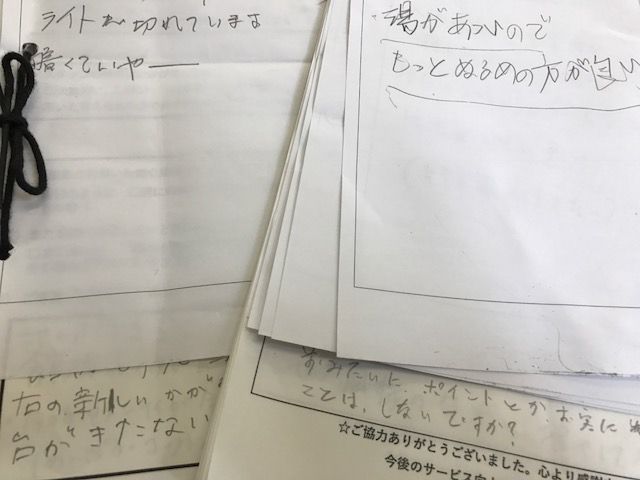 ライトが切れています
暗くていやー
湯があついので
もっとぬるめの方が良い
右の新しいかが
台がきたない
前みたいに ポイントとか、お実に
ことは、しないですか?
☆ご協力ありがとうございました。心より感謝
今後のサービス向